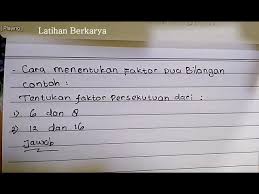 [Playing]
Latihan Berkarya
- Cara menentukan Faktor Dua Bilangan
contoh :
Tentukan faktor Persekutuan dari :
1) 6 dan 8
2) 12 dan 16
Jawab